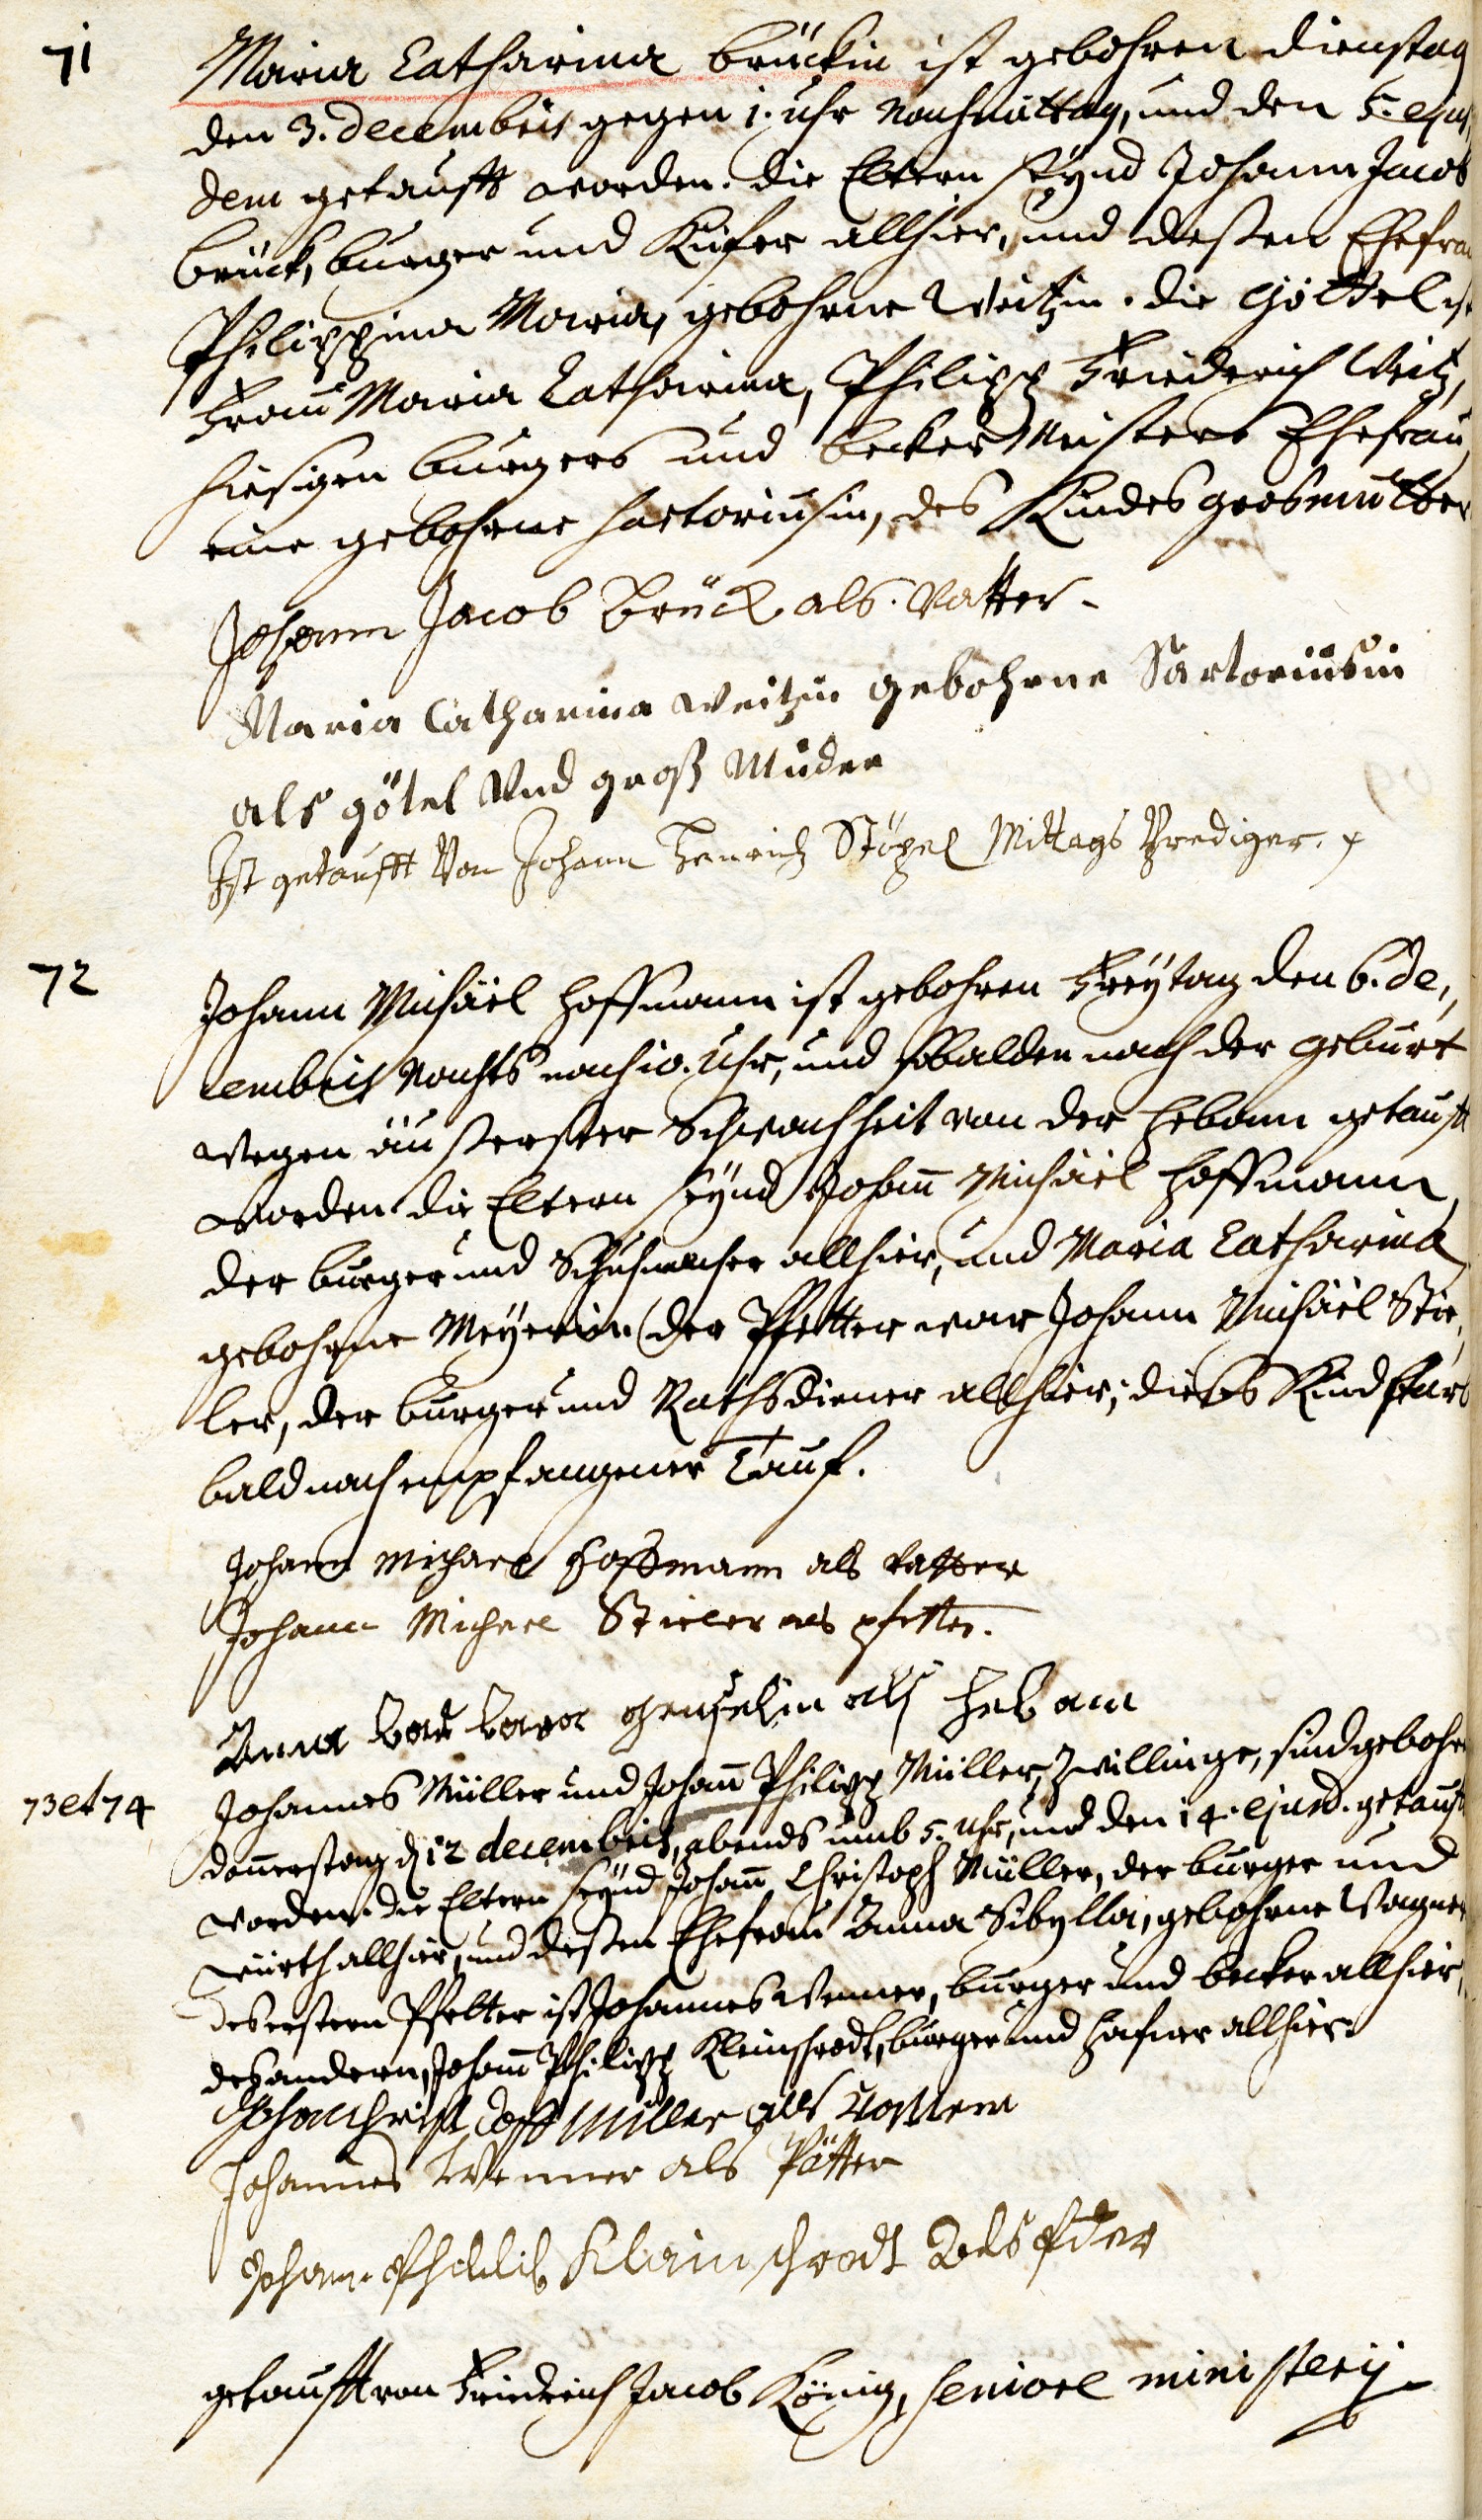 71
Maria Catharina Brückin ist gebohren Dienstag
den 3. decembris gegen 1. Uhr Nachmittag, und den 5. ejus,
dem getaufft worden. die Eltern seynd Johann Jacob
Brück, burger und Kùfer allhier, und deßen Ehefrau
Philippina Maria, gebohrne Weitzin. die Göttel ist
Frau Maria Catharina, Philipp Friederich Weitz,
hiesigen burgers und becker Meisters Ehefrau,
eine gebohrne Sartoriusin, des Kindes grosmutter
Johann Jacob Brück als Vatter.
Maria Catharina Weitzin gebohrne Sartoriusin
als götel Und groß Muder
Ist getaufft Von Johann Henrich Stöpel Mittags Prediger.
72
Johann Michäel Hoffmann ist gebohren Freytag den 6. de,,
cembris Nachts nach 10. Uhr, und sobalden nach der geburt
wegen äusserster Schwachheit von der Hebam getaufft
worden. die Eltern seynd Johan̄ Michäel Hoffmann,
der burger und Schuhmacher allhier, und Maria Catharina
gebohrne Meyerin. der Pfetter war Johann Michäel Stie,
ler, der burger und Rathsdiener allhier; dieses Kind starb
bald nach empfangener Tauf.
Johann Michael Hoffmann als vatter
Johann Michael Stieler als pfetter.
Anna Bar bara als Heb am
73 et 74
Johannes Müller und Johan̄ Philipp Müller, Zwillinge, sind gebohren
don̄erstag d 12 decembris, abends umb 5. Uhr, und den 14. ejusd. getaufft
worden. die Eltern seynd Johan̄ Christoph Müller, der burger und
würth allhier, und deßen Ehefrau Anna Sibylla, gebohrne Wagner
des erstern Pfetter ist Johannes Wenner, burger und becker allhier,
des andern, Johan̄ Philipp Kleinschrodt, burger und Hafner allhier.
Johan Christ doff Müller als Vatter
Johannes Wenner als Pätter
Johan Philib Klein schrodt Als
getaufft von Friedrich Jacob König, seniore ministerij